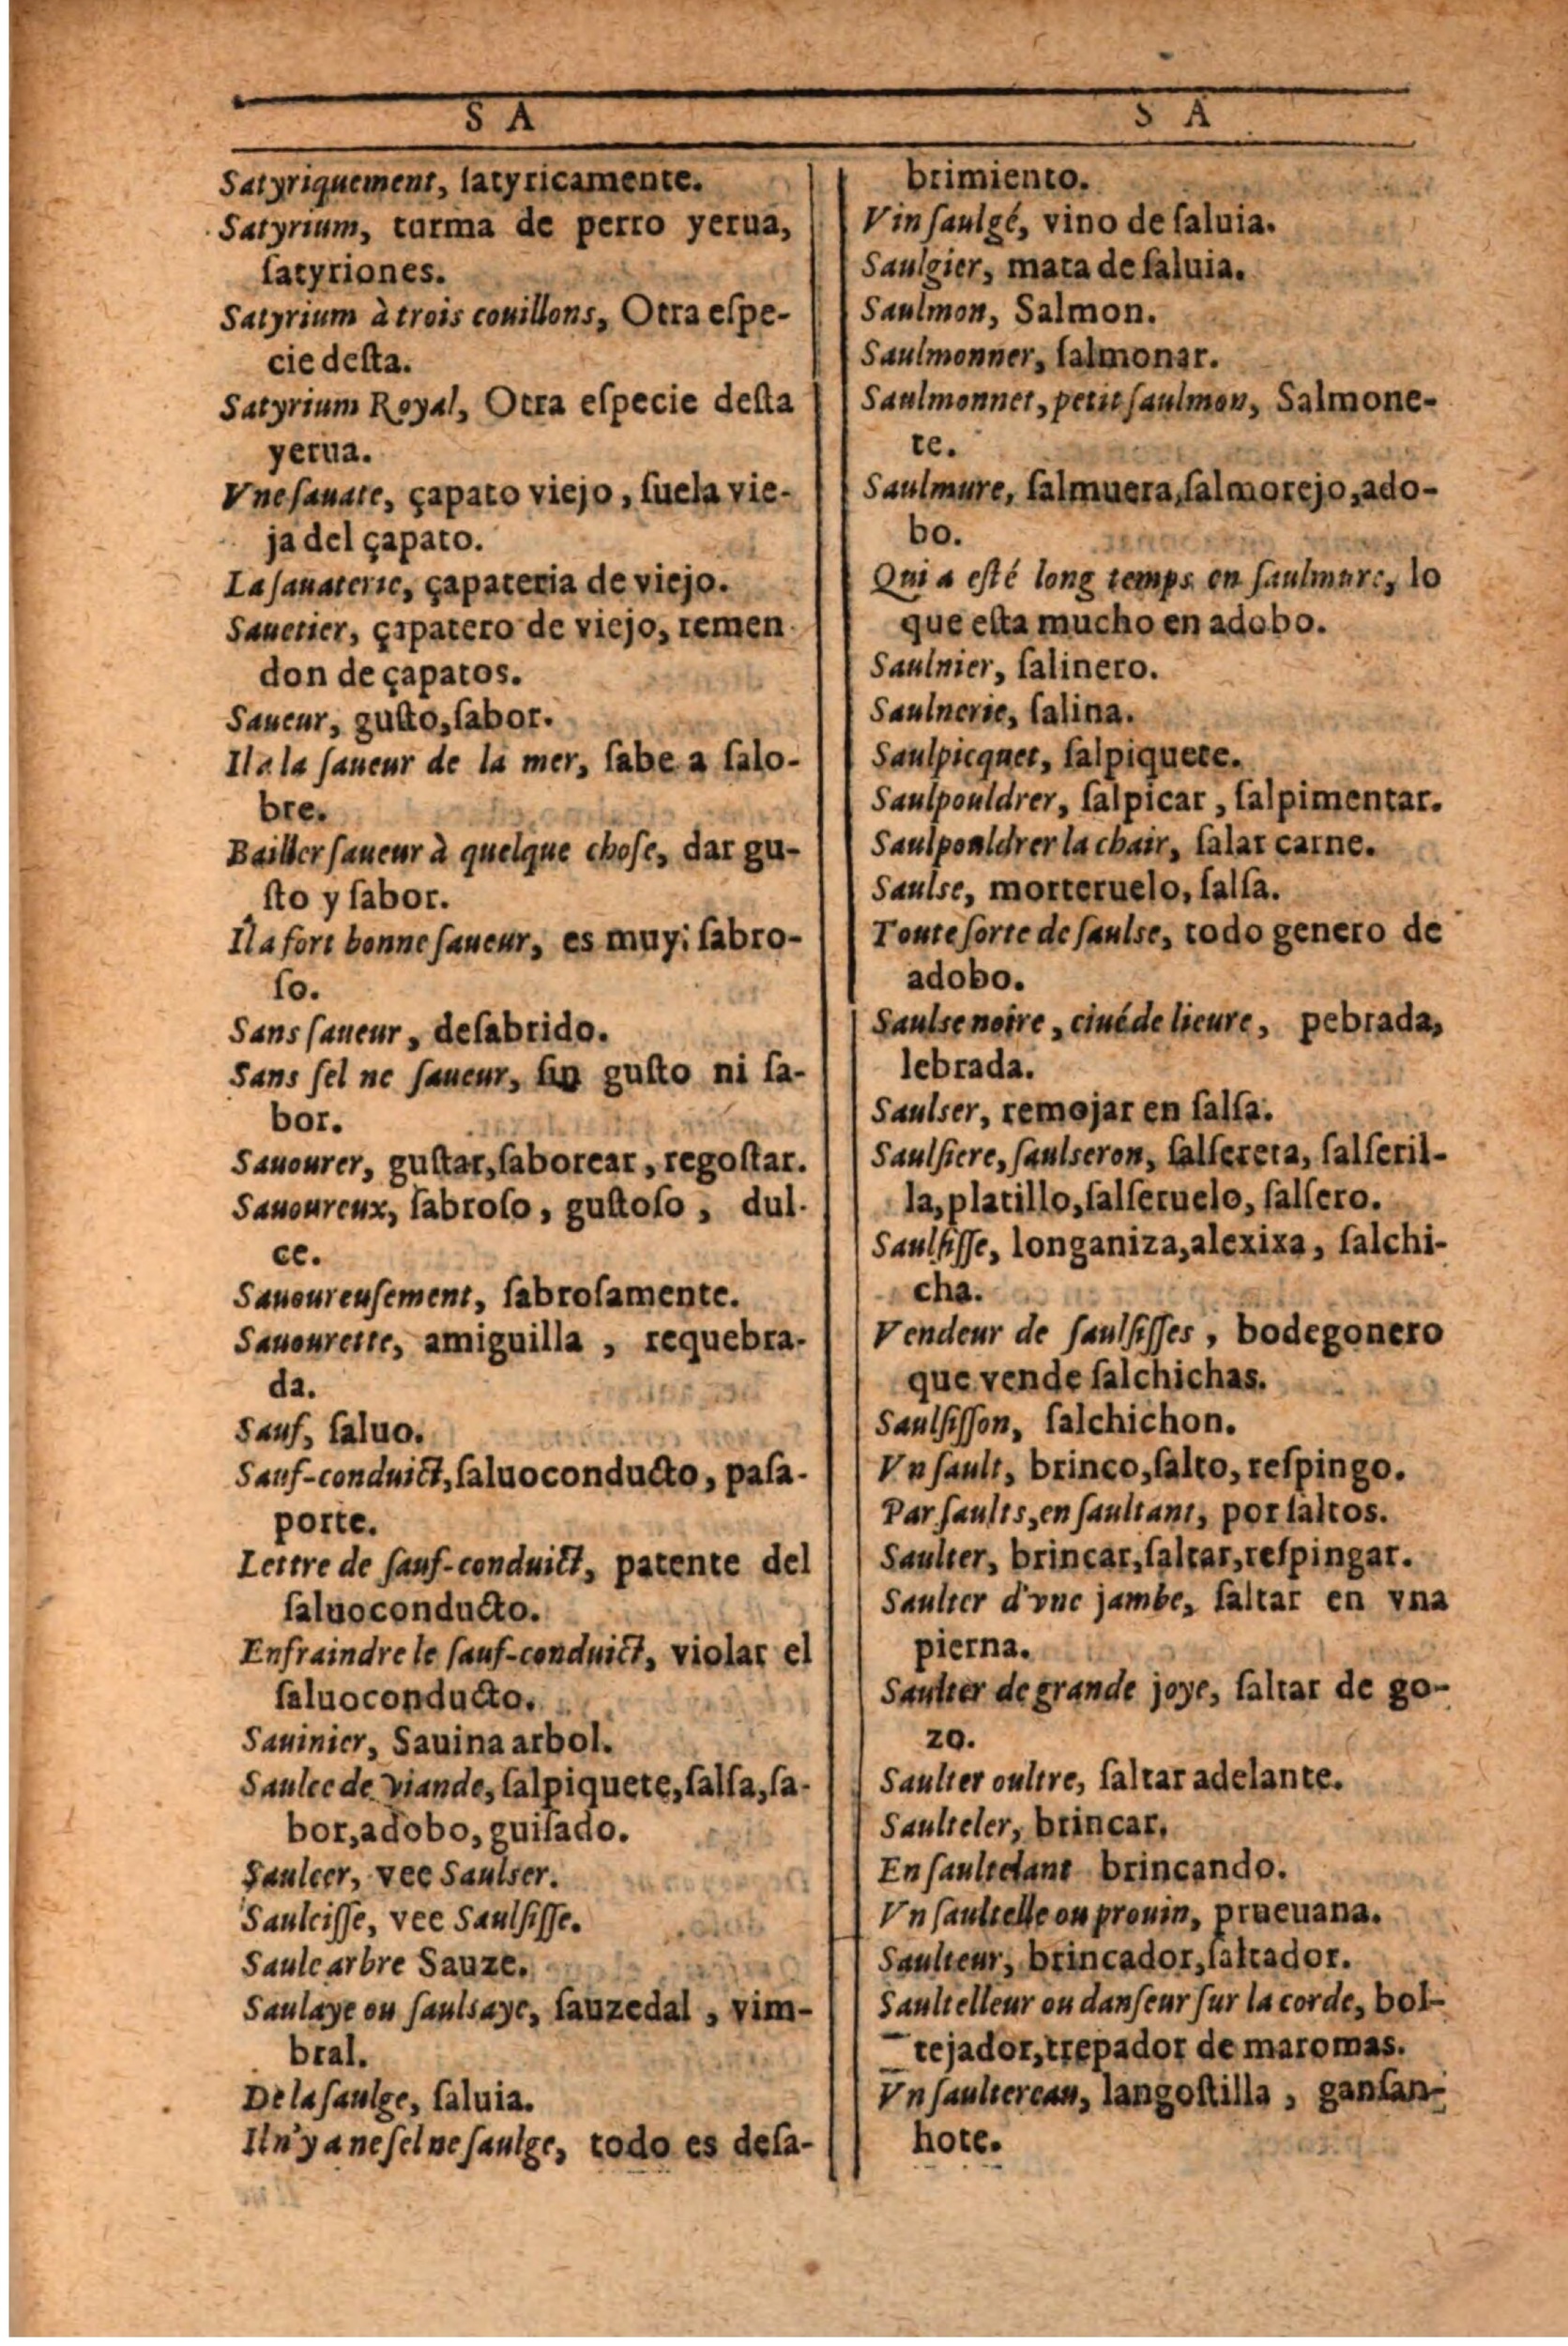 S A
Satyriquement, ſatyricamente.
Satyrium, turma de perro yerua,
ſatyriones.
Satyrium à trois couillons, Otra eſpe-
cie deſta.
Satyrium Royal, Otra eſpecie deſta
yerua.
Vne ſauate, çapato viejo, ſuela vie-
ja del çapato.
La ſauaterie, çapateria de viejo.
Sauetier, çapatero de viejo, remen
don de çapatos.
Saueur, guſto, ſabor.
Il a la ſaueur de la mer, ſabe a ſalo-
bre.
Bailler ſaueur à quelque choſe, dar gu-
ſto y ſabor.
Il a fort bonne ſaueur, es muy; ſabro-
ſo.
Sans ſaueur, deſabrido.
Sans ſel ne ſaueur, ſin guſto ni ſa-
bor.
Sauourer, guſtar, ſaborear, regoſtar.
Sauoureux, ſabroſo, guſtoſo, dul-
ce.
Sauoureuſement, ſabroſamente.
Sauourette, amiguilla, requebra-
da.
Sauf, ſaluo.
Sauf-conduict, ſaluoconducto, paſa-
porte.
Lettre de ſauf-conduict, patente del
ſaluoconducto.
Enfraindre le ſauf-conduict, violar el
ſaluoconducto.
Sauinier, Sauina arbol.
Saulce de viande, ſalpiquete, ſalſa, ſa-
bor, adobo, guiſado.
Saulcer, vee Saulser.
Saulciſſe, vee Saulſiſſe.
Saule arbre Sauze.
Saulaye ou ſaulsaye, ſauzedal, vim-
bral.
De la ſaulge, ſaluia.
Il n'y a ne ſel ne ſaulge, todo es deſa-
S A
brimiento.
Vin ſaulgé, vino de ſaluia.
Saulgier, mata de ſaluia.
Saulmon, Salmon.
Saulmonner, ſalmonar.
Saulmonnet, petit ſaulmon, Salmone-
te.
Saulmure, ſalmuera, ſalmorejo, ado-
bo.
Qui a eſté long temps en ſaulmure, lo
que eſta mucho en adobo.
Saulnier, ſalinero.
Saulnerie, ſalina.
Saulpicquet, ſalpiquete.
Saulpouldrer, ſalpicar, ſalpimentar.
Saulpouldrer la chair, ſalar carne.
Saulse, morteruelo, ſalſa.
Toute ſorte de ſaulse, todo genero de
adobo.
Saulse noire, ciué de lieure, pebrada,
lebrada.
Saulser, remojar en ſalſa.
Saulſiere, ſaulseron, ſalſereta, ſalſeril-
la, platillo, ſalſeruelo, ſalſero.
Saulſiſſe, longaniza, alexixa, ſalchi-
cha.
Vendeur de ſaulſiſſes, bodegonero
que vende ſalchichas.
Saulſiſſon, ſalchichon.
Vn ſault, brinco, ſalto, reſpingo.
Par ſaults, en ſaultant, por ſaltos.
Saulter, brincar, ſaltar, reſpingar.
Saulter d'vne jambe, ſaltar en vna
pierna.
Saulter de grande joye, ſaltar de go-
zo.
Saulter oultre, ſaltar adelante.
Saulteler, brincar.
En ſaultelant brincando.
Vn ſaultelle ou prouin, prueuana.
Saulteur, brincador, ſaltador.
Saultelleur ou danſeur ſur la corde, bol-
tejador, trepador de maromas.
Vn ſaultereau, langoſtilla, ganſan-
hote.